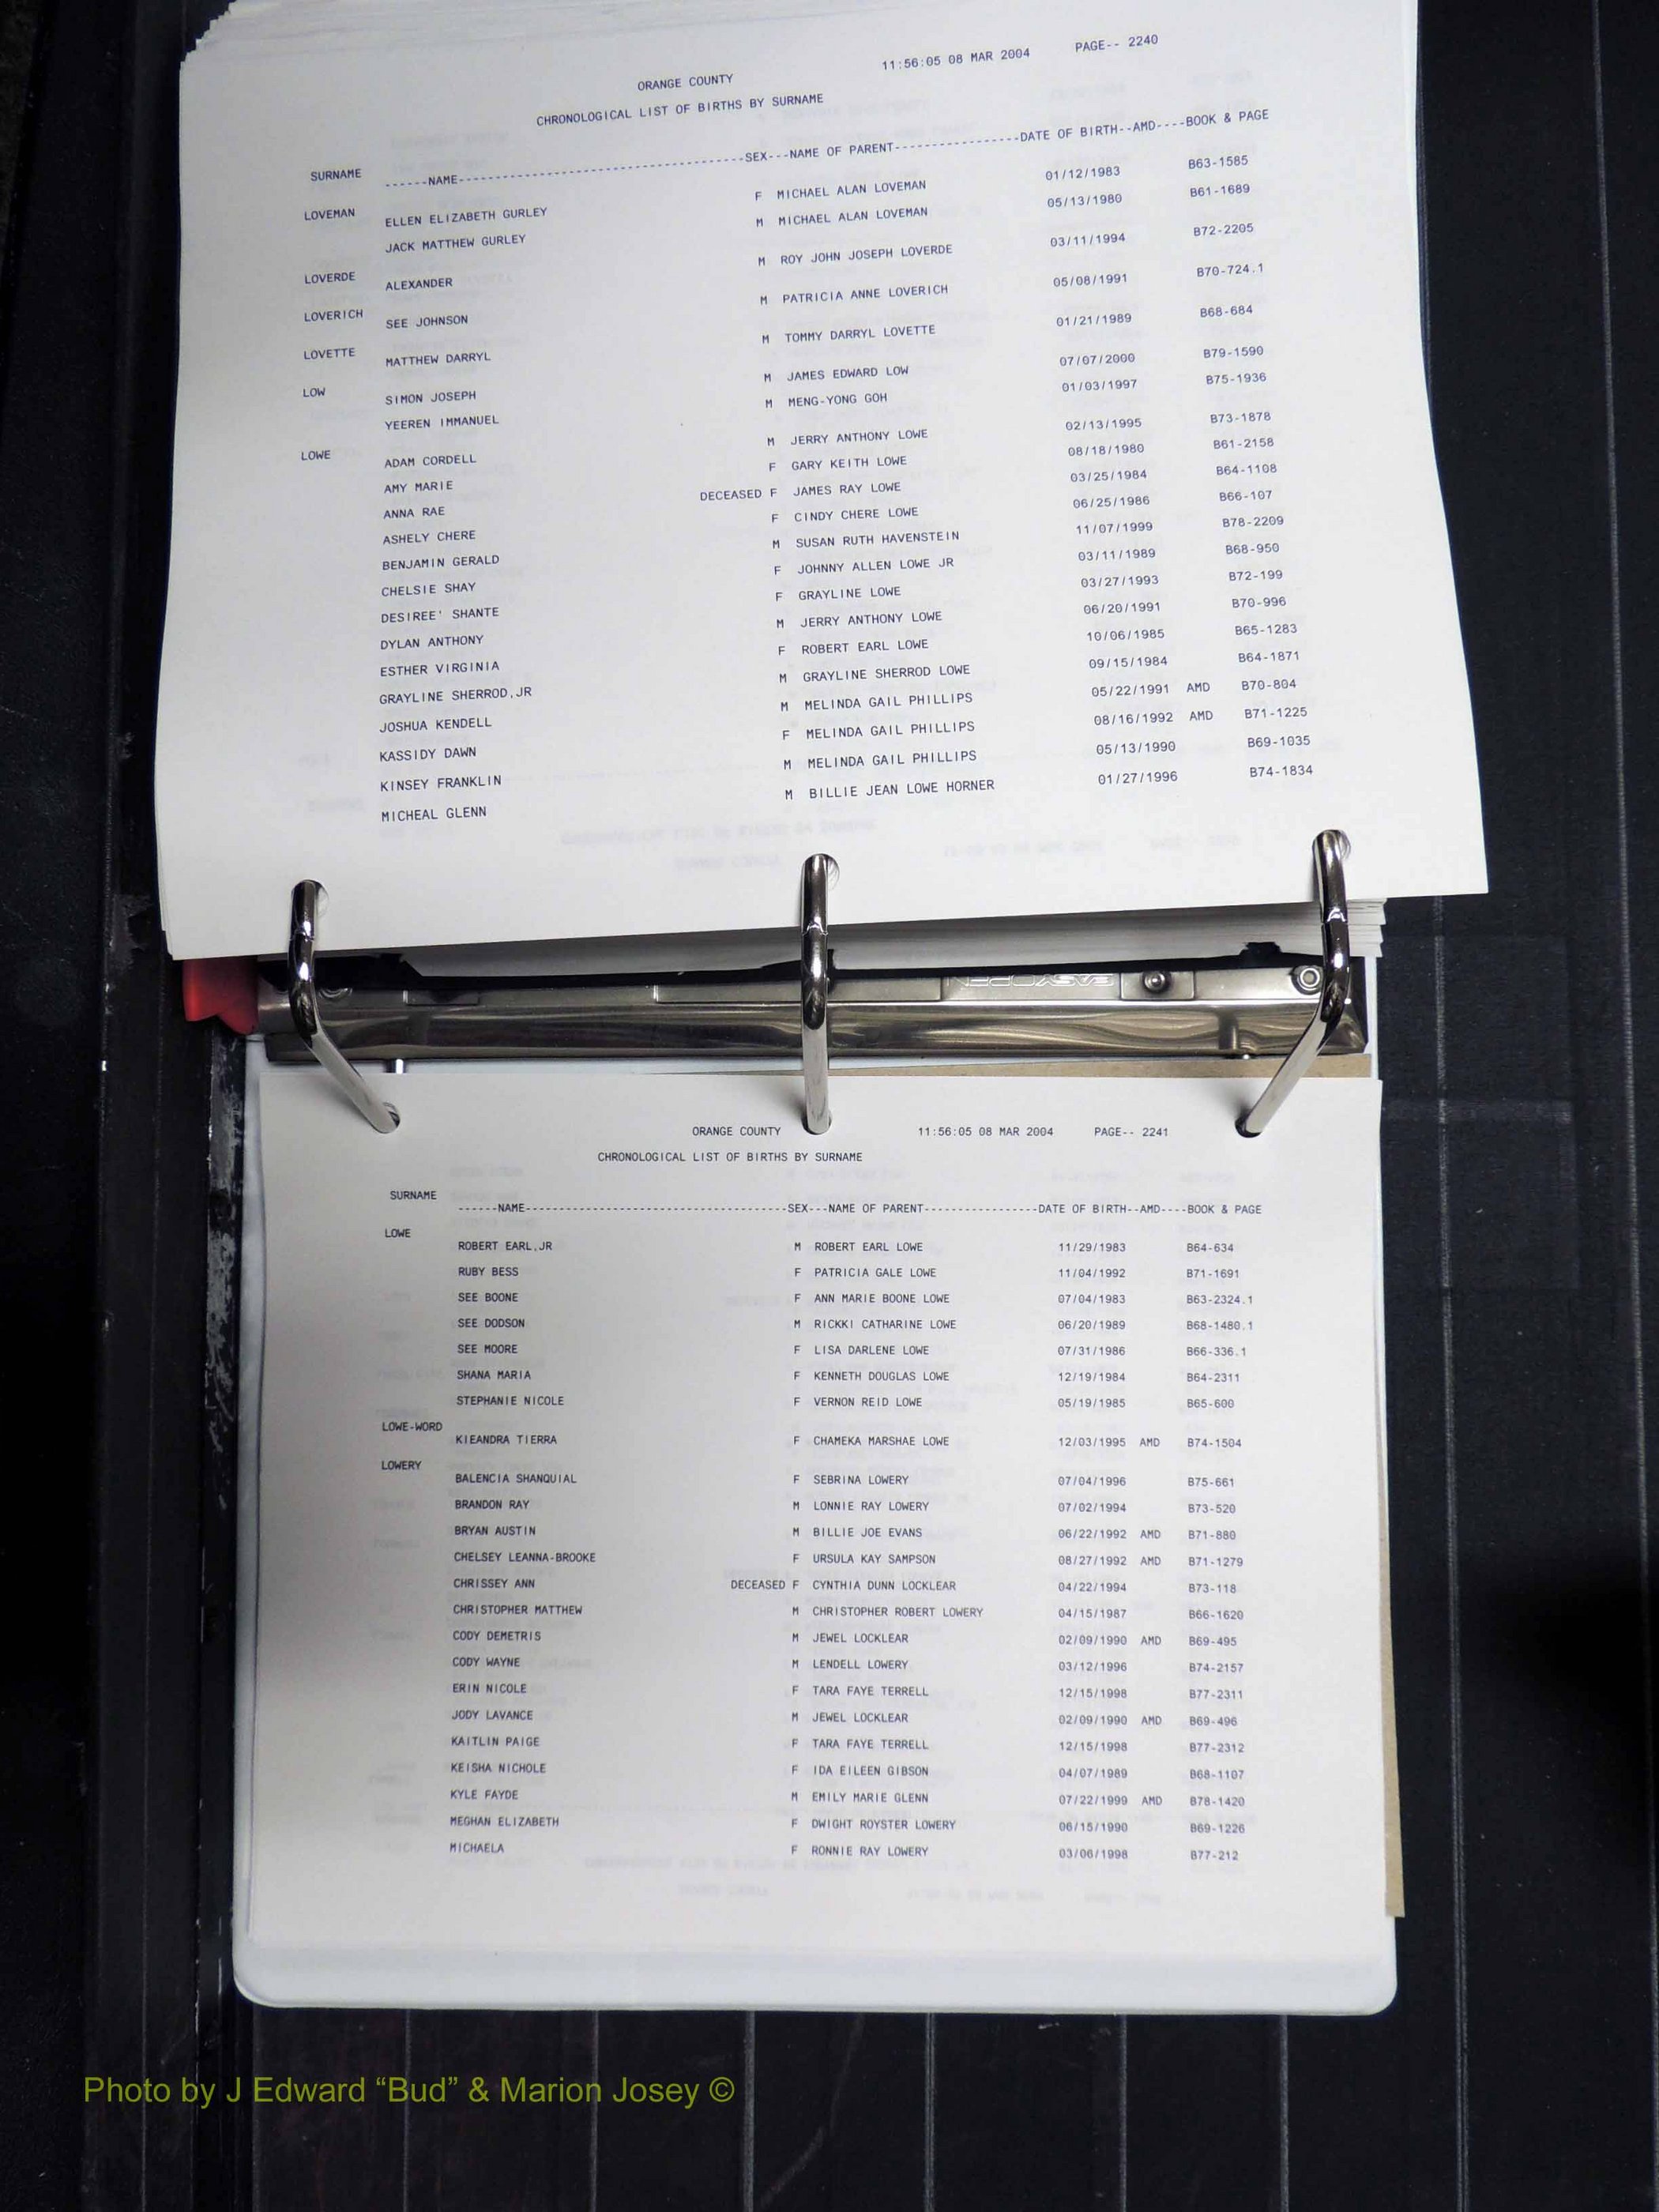 11:56:05 08 MAR 2004 PAGE-- 2240
ORANGE COUNTY
CHRONOLOGICAL LIST OF BIRTHS BY SURNAME
SURNAME ------NAME----------------------------------------SEX---NAME OF PARENT-----------------DATE OF BIRTH--AMD----BOOK & PAGE
LOVEMAN
ELLEN ELIZABETH GURLEY F MICHAEL ALAN LOVEMAN 01/12/1983 B63-1585
JACK MATTHEW GURLEY M MICHAEL ALAN LOVEMAN 05/13/1980 B61-1689
LOVERDE
ALEXANDER M ROY JOHN JOSEPH LOVERDE 03/11/1994 B72-2205
LOVERICH
SEE JOHNSON M PATRICIA ANNE LOVERICH 05/08/1991 B70-724.1
LOVETTE
MATTHEW DARRYL M TOMMY DARRYL LOVETTE 01/21/1989 B68-684
LOW
SIMON JOSEPH M JAMES EDWARD LOW 07/07/2000 B79-1590
YEEREN IMMANUEL M MENG-YONG GOH 01/03/1997 B75-1936
LOWE
ADAM CORDELL M JERRY ANTHONY LOWE 02/13/1995 B73-1878
AMY MARIE F GARY KEITH LOWE 08/18/1980 B61-2158
ANNA RAE DECEASED F JAMES RAY LOWE 03/25/1984 B64-1108
ASHELY CHERE F CINDY CHERE LOWE 06/25/1986 B66-107
BENJAMIN GERALD M SUSAN RUTH HAVENSTEIN 11/07/1999 B78-2209
CHELSIE SHAY F JOHNNY ALLEN LOWE JR 03/11/1989 B68-950
DESIREE' SHANTE F GRAYLINE LOWE 03/27/1993 B72-199
DYLAN ANTHONY M JERRY ANTHONY LOWE 06/20/1991 B70-996
ESTHER VIRGINIA F ROBERT EARL LOWE 10/06/1985 B65-1283
GRAYLINE SHERROD,JR M GRAYLINE SHERROD LOWE 09/15/1984 B64-1871
JOSHUA KENDELL M MELINDA GAIL PHILLIPS 05/22/1991 AMD B70-804
KASSIDY DAWN F MELINDA GAIL PHILLIPS 08/16/1992 AMD B71-1225
KINSEY FRANKLIN M MELINDA GAIL PHILLIPS 05/13/1990 B69-1035
MICHEAL GLENN M BILLIE JEAN LOWE HORNER 01/27/1996 B74-1834
EASYOPEN
ORANGE COUNTY 11:56:05 08 MAR 2004 PAGE-- 2241
CHRONOLOGICAL LIST OF BIRTHS BY SURNAME
SURNAME
------NAME----------------------------------------SEX---NAME OF PARENT-----------------DATE OF BIRTH--AMD----BOOK & PAGE
LOWE
ROBERT EARL,JR M ROBERT EARL LOWE 11/29/1983 B64-634
RUBY BESS F PATRICIA GALE LOWE 11/04/1992 B71-1691
SEE BOONE F ANN MARIE BOONE LOWE 07/04/1983 B63-2324.1
SEE DODSON M RICKKI CATHARINE LOWE 06/20/1989 B68-1480.1
SEE MOORE F LISA DARLENE LOWE 07/31/1986 B66-336.1
SHANA MARIA F KENNETH DOUGLAS LOWE 12/19/1984 B64-2311
STEPHANIE NICOLE F VERNON REID LOWE 05/19/1985 B65-600
LOWE-WORD
KIEANDRA TIERRA F CHAMEKA MARSHAE LOWE 12/03/1995 AMD B74-1504
LOWERY
BALENCIA SHANQUIAL F SEBRINA LOWERY 07/04/1996 B75-661
BRANDON RAY M LONNIE RAY LOWERY 07/02/1994 B73-520
BRYAN AUSTIN M BILLIE JOE EVANS 06/22/1992 AMD B71-880
CHELSEY LEANNA-BROOKE F URSULA KAY SAMPSON 08/27/1992 AMD B71-1279
CHRISSEY ANN DECEASED F CYNTHIA DUNN LOCKLEAR 04/22/1994 B73-118
CHRISTOPHER MATTHEW M CHRISTOPHER ROBERT LOWERY 04/15/1987 B66-1620
CODY DEMETRIS M JEWEL LOCKLEAR 02/09/1990 AMD B69-495
CODY WAYNE M LENDELL LOWERY 03/12/1996 B74-2157
ERIN NICOLE F TARA FAYE TERRELL 12/15/1998 B77-2311
JODY LAVANCE M JEWEL LOCKLEAR 02/09/1990 AMD B69-496
KAITLIN PAIGE F TARA FAYE TERRELL 12/15/1998 B77-2312
KEISHA NICHOLE F IDA EILEEN GIBSON 04/07/1989 B68-1107
KYLE FAYDE M EMILY MARIE GLENN 07/22/1999 AMD B78-1420
MEGHAN ELIZABETH F DWIGHT ROYSTER LOWERY 06/15/1990 B69-1226
MICHAELA F RONNIE RAY LOWERY 03/06/1998 B77-212
Photo by J Edward “Bud” & Marion Josey ©